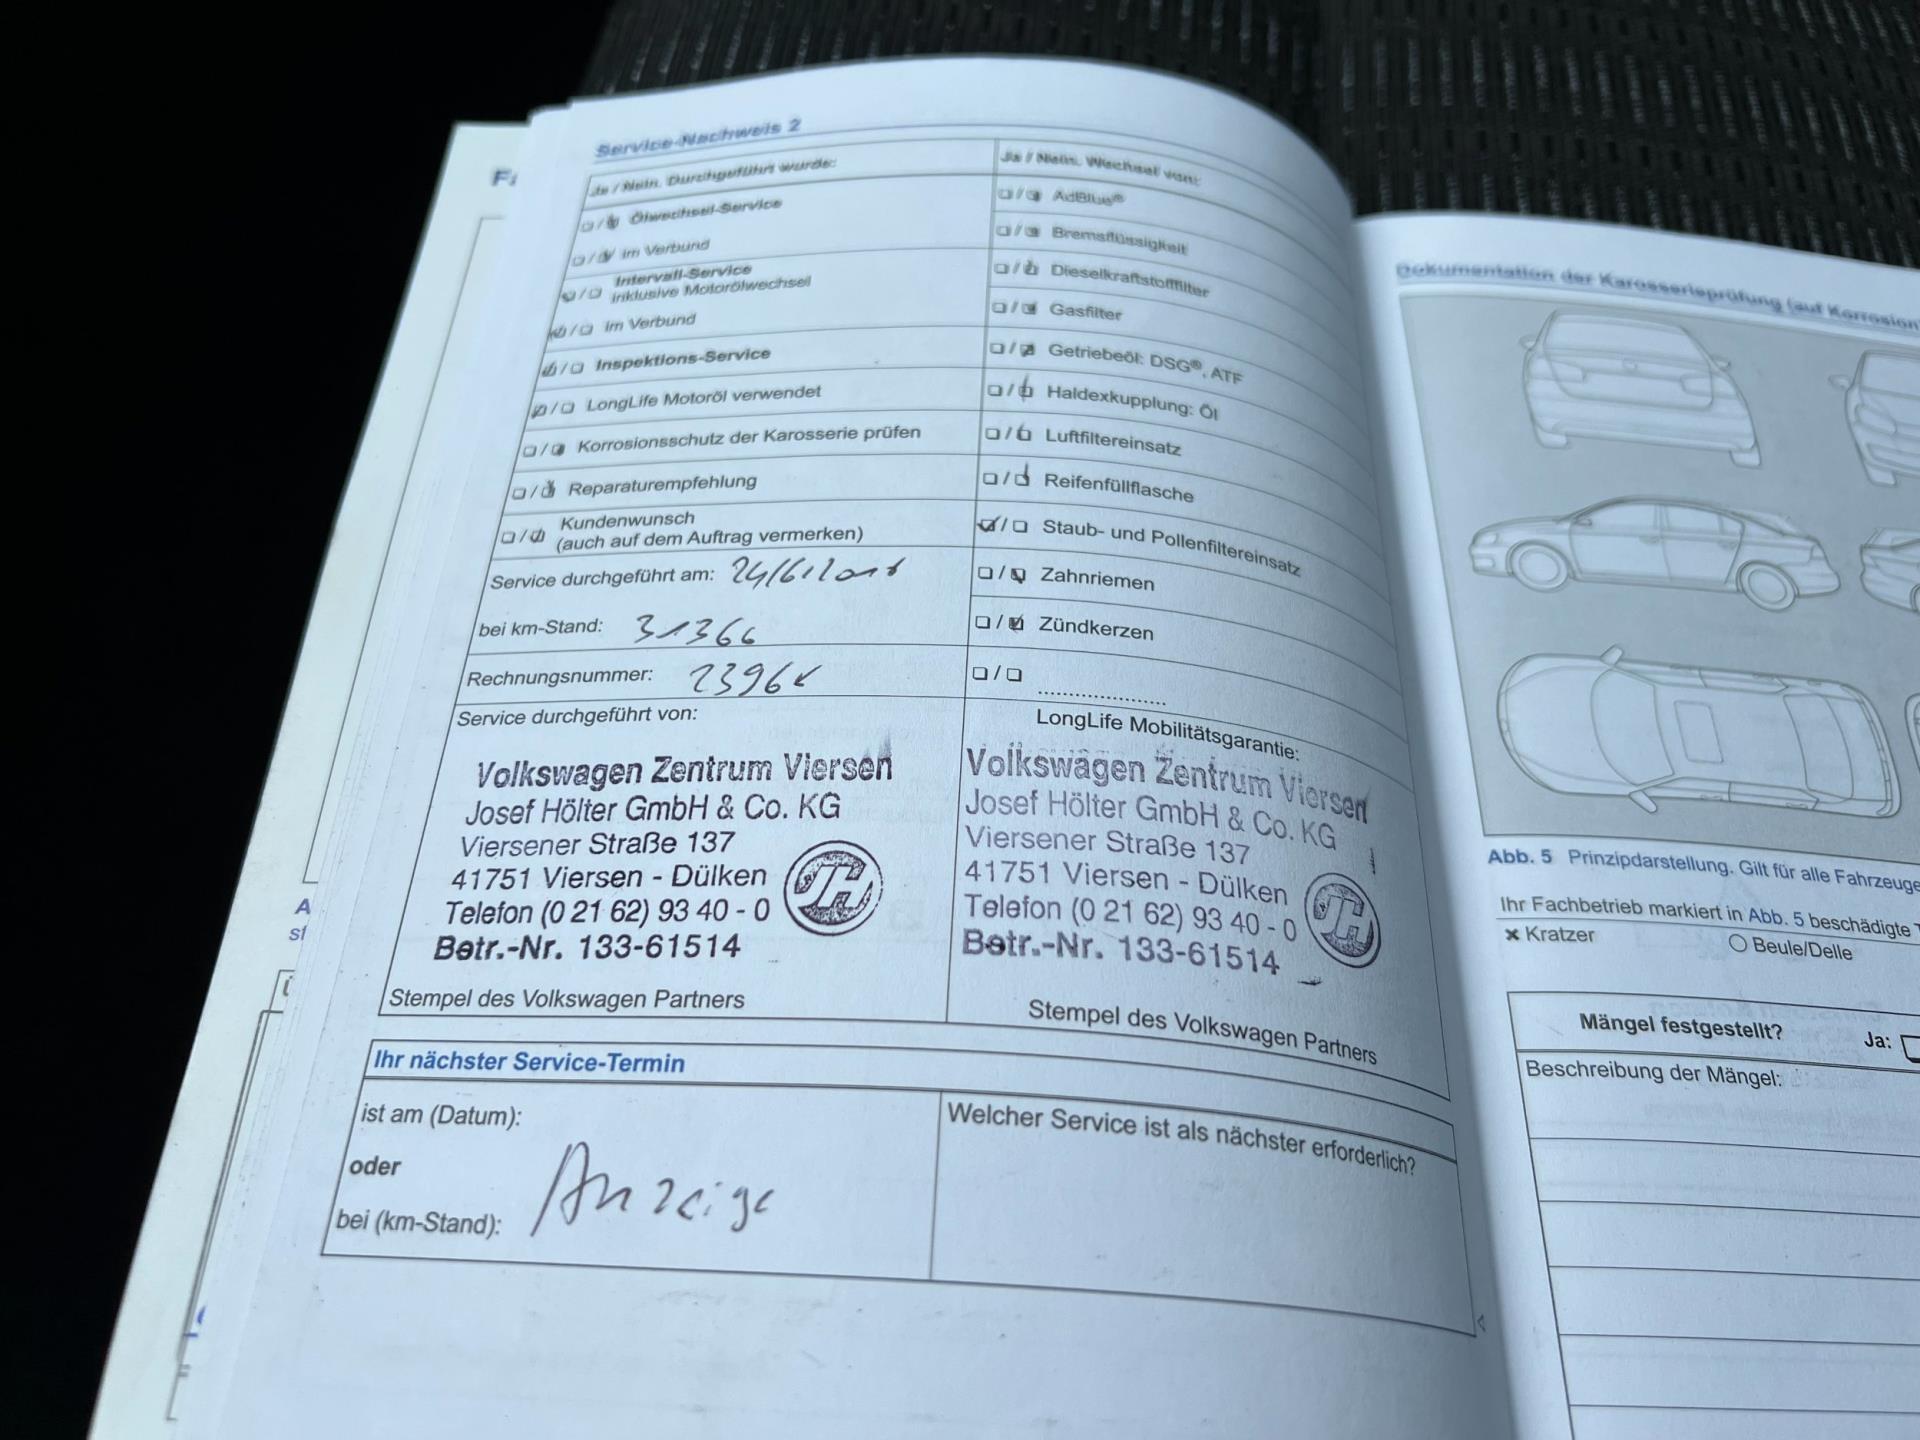 Service-Nachweis 2
Ja / Nein. Durchgeführt wurde:
Ölwechsel-Service
im Verbund
Intervall-Service
inklusive Motorölwechsel
im Verbund
Inspektions-Service
LongLife Motoröl verwendet
Korrosionsschutz der Karosserie prüfen
Reparaturempfehlung
Kundenwunsch
(auch auf dem Auftrag vermerken)
Service durchgeführt am:
bei km-Stand: 31366
Rechnungsnummer:
Service durchgeführt von:
Volkswagen Zentrum Viersen
Josef Hölter GmbH & Co. KG
Viersener Straße 137
41751 Viersen - Dülken
Telefon (0 21 62) 93 40 - 0
Betr.-Nr. 133-61514
Stempel des Volkswagen Partners
Ja / Nein. Wechsel von:
AdBlue®
Bremsflüssigkeit
Dieselkraftstofffilter
Gasfilter
Getriebeöl: DSG®, ATF
Haldexkupplung: Öl
Luftfiltereinsatz
Reifenfüllflasche
Staub- und Pollenfiltereinsatz
Zahnriemen
Zündkerzen
LongLife Mobilitätsgarantie:
Volkswagen Zentrum Viersen
Josef Hölter GmbH & Co. KG
Viersener Straße 137
41751 Viersen - Dülken
Telefon (0 21 62) 93 40 - 0
Betr.-Nr. 133-61514
Stempel des Volkswagen Partners
Ihr nächster Service-Termin
ist am (Datum):
oder
bei (km-Stand):
Anzeige
Welcher Service ist als nächster erforderlich?
Dokumentation der Karosserieprüfung (auf Korrosion)
Abb. 5 Prinzipdarstellung. Gilt für alle Fahrzeuge
Ihr Fachbetrieb markiert in Abb. 5 beschädigte
× Kratzer
Beule/Delle
Mängel festgestellt?
Ja:
Beschreibung der Mängel: